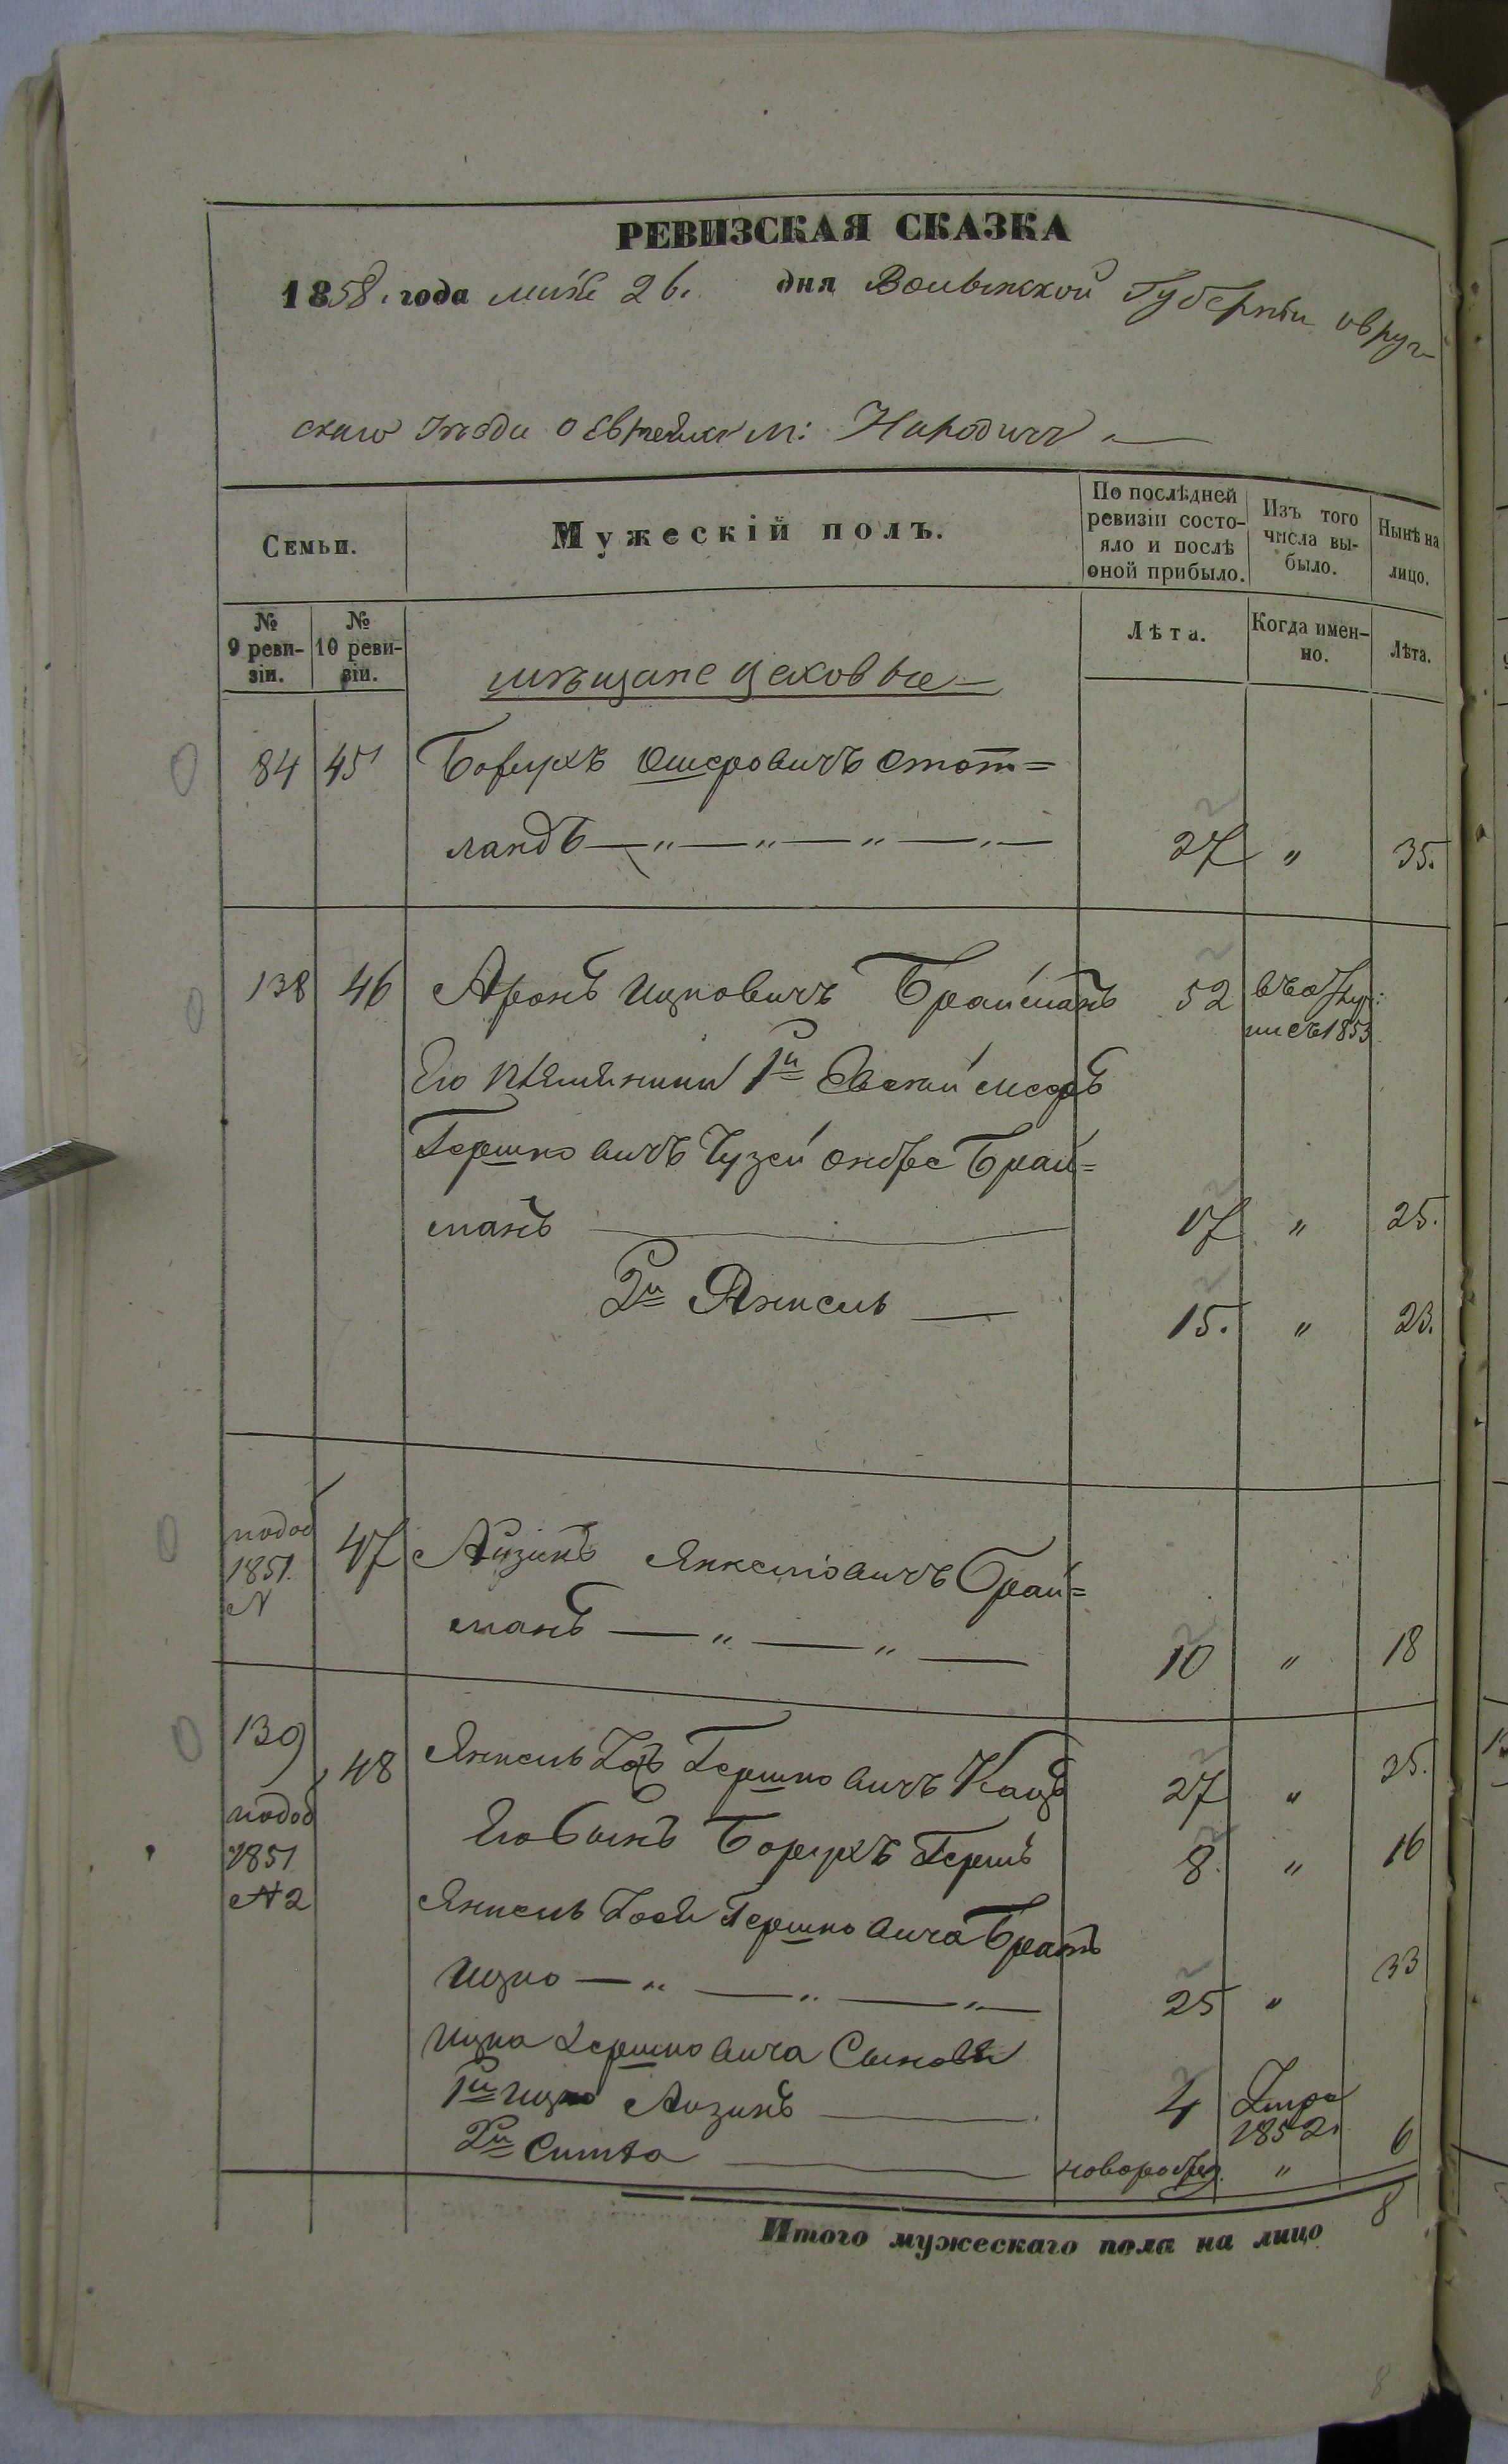 РЕВИЗСКАЯ СКАЗКА
1858. года маія 26. дня Волынской Губерніи овруч-
скаго уѣзда о евреяхъ м: Народичъ
Семьи.
Мужескій полъ.
По послѣдней ревизіи состояло и послѣ оной прибыло.
Изъ того числа выбыло.
Нынѣ на лицо.
№ 9 ревизіи.
№ 10 ревизіи.
Лѣта.
Когда именно.
Лѣта.
мѣщане цеховые
84 45 Борухъ Ошеровичъ Стот=
ландъ 27 " 35.
138 46 Аронъ Ицковичъ Браиманъ 52
1853
Его племянники 1й
Гершковичъ Браи=
манъ 17 " 25.
2й Янкель 15. " 23.
по доб 1851. N 47 Аизикъ Янкелiовичъ Браи=
манъ 10 " 18
139 48 Янкель Гершковичъ Кацъ 27 " 35.
по доб 1851 N2
Его Сынъ Борухъ Гершъ 8. " 16
Янкель Гершковича Братъ
Ицко 25 " 33
Ицка Гершковича Сыновья
1й Ицко Аизикъ 4 Умре 1852.
2й новорожд. " 6
Итого мужескаго пола на лицо 8
8